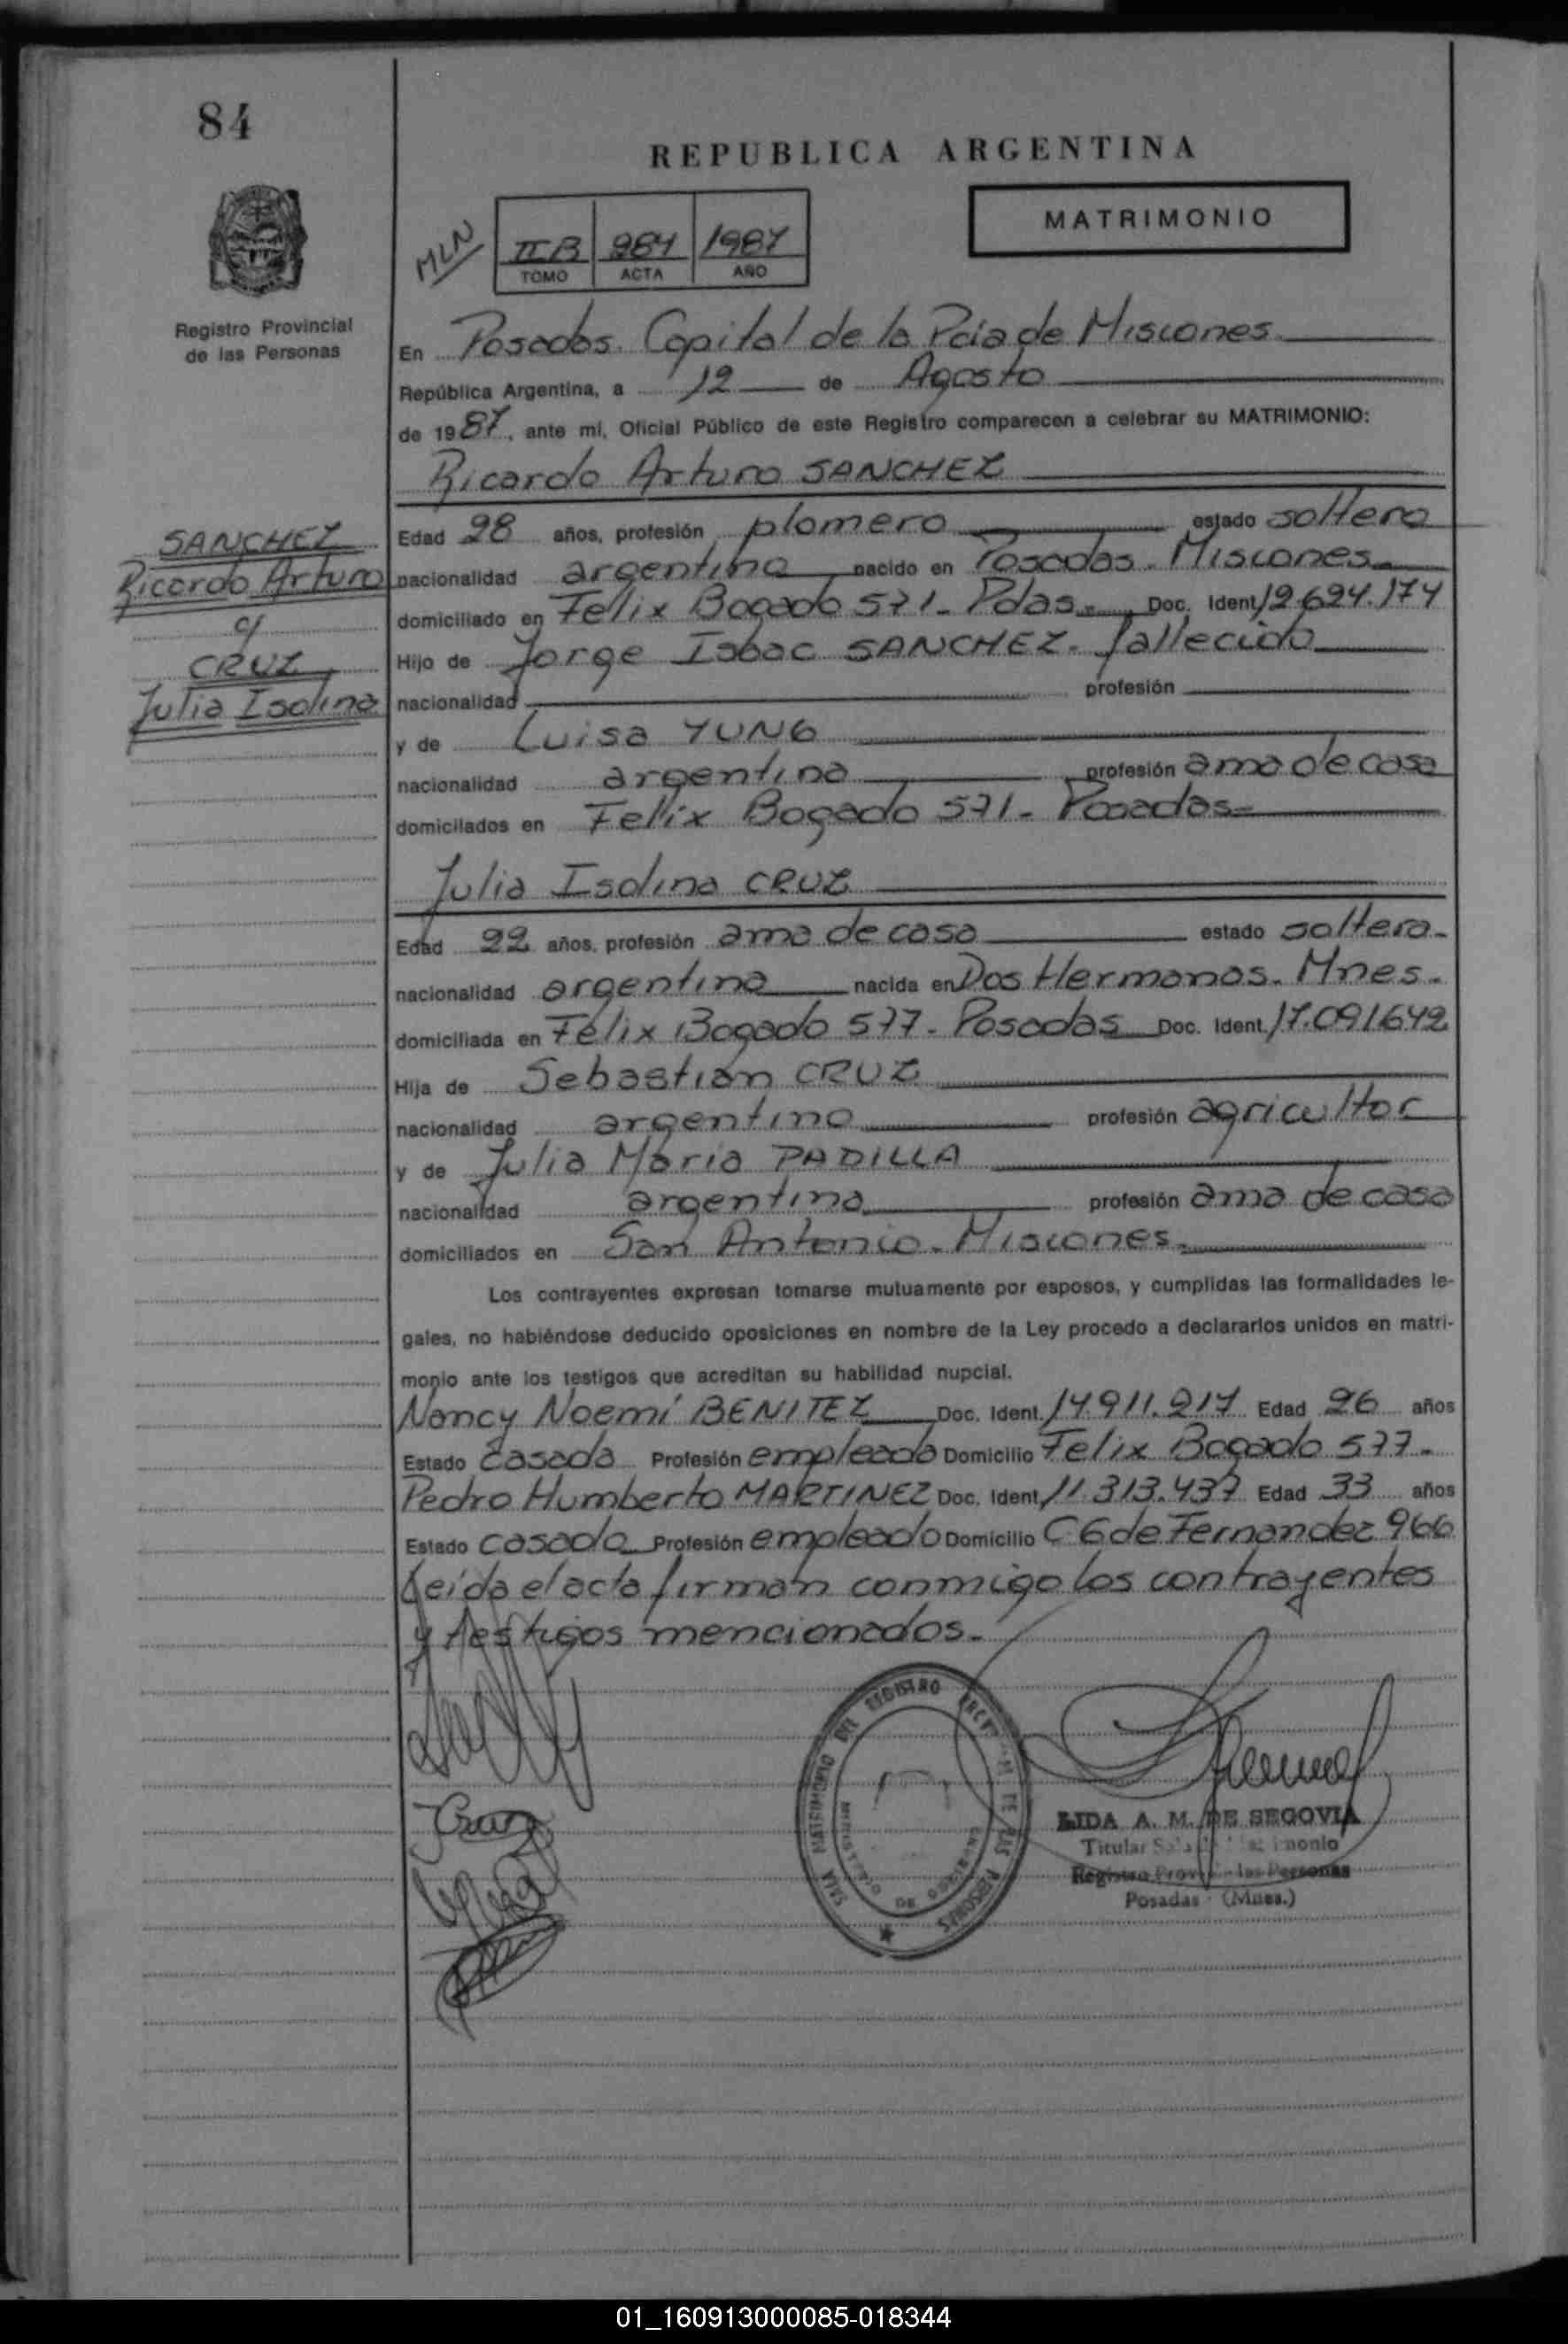 84
REPUBLICA ARGENTINA
MATRIMONIO
MLN
II B 284 1987
TOMO ACTA AÑO
Registro Provincial
de las Personas
En Posadas. Capital de la Pcia de Misiones
República Argentina, a 12 de Agosto
de 1987, ante mí, Oficial Público de este Registro comparecen a celebrar su MATRIMONIO:
Ricardo Arturo SANCHEZ
SANCHEZ
Ricardo Arturo
c/
CRUZ
Julia Isolina
Edad 28 años, profesión plomero estado soltero
nacionalidad argentina nacido en Posadas. Misiones
domiciliado en Felix Bogado 571. Pdas. Doc. Ident. 12.624.174
Hijo de Jorge Isaac SANCHEZ. fallecido
nacionalidad profesión
y de Luisa YUNG
nacionalidad argentina profesión ama de casa
domicilados en Felix Bogado 571. Posadas
Julia Isolina CRUZ
Edad 22 años, profesión ama de casa estado soltera.
nacionalidad argentina nacida en Dos Hermanas. Mnes.
domiciliada en Félix Bogado 577. Posadas Doc. Ident. 17.091.642
Hija de Sebastián CRUZ
nacionalidad argentino profesión agricultor
y de Julia Maria PADILLA
nacionalidad argentina profesión ama de casa
domiciliados en San Antonio. Misiones.
Los contrayentes expresan tomarse mutuamente por esposos, y cumplidas las formalidades le-
gales, no habiéndose deducido oposiciones en nombre de la Ley procedo a declararlos unidos en matri-
monio ante los testigos que acreditan su habilidad nupcial.
Nancy Noemí BENITEZ Doc. Ident. 14.911.217 Edad 26 años
Estado casada Profesión empleada Domicilio Felix Bogado 577.
Pedro Humberto MARTINEZ Doc. Ident. 11.313.437 Edad 33 años
Estado casado Profesión empleado Domicilio C 6 de Fernandez 966
Leída el acta firman conmigo los contrayentes
y testigos mencionados.
SALA MATRIMONIO DEL REGISTRO DE LAS PERSONAS
MINISTERIO DE GOBIERNO
LIDA A. M. DE SEGOVIA
Titular Sala Matrimonio
Registro Prov. las Personas
Posadas (Mnes.)
01_160913000085-018344